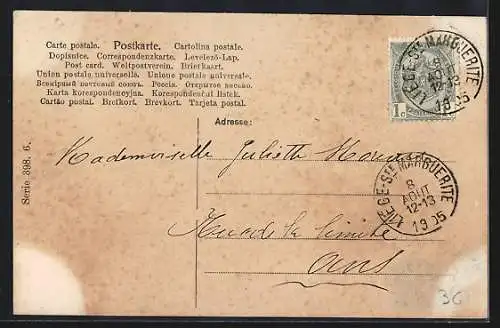 Carte postale. Postkarte. Cartolina postale.
Dopisnice. Correspondenzkarte. Levelező-Lap.
Post card. Weltpostverein. Briefkaart.
Union postale universelle. Unione postale universale.
Всемірный почтовый союзъ. Россія. Открытое письмо.
Karta korespondencyjna. Korespondenční lístek.
Cartão postal. Brefkort. Brevkort. Tarjeta postal.
LIÈGE-STE MARGUERITE
8
AOUT
12-13
1905
1c
Adresse:
Mademoiselle Juliette
LIÈGE-STE MARGUERITE
8
AOUT
12-13
1905
Rue de la limite
Ans
Serie 398. 6.
36